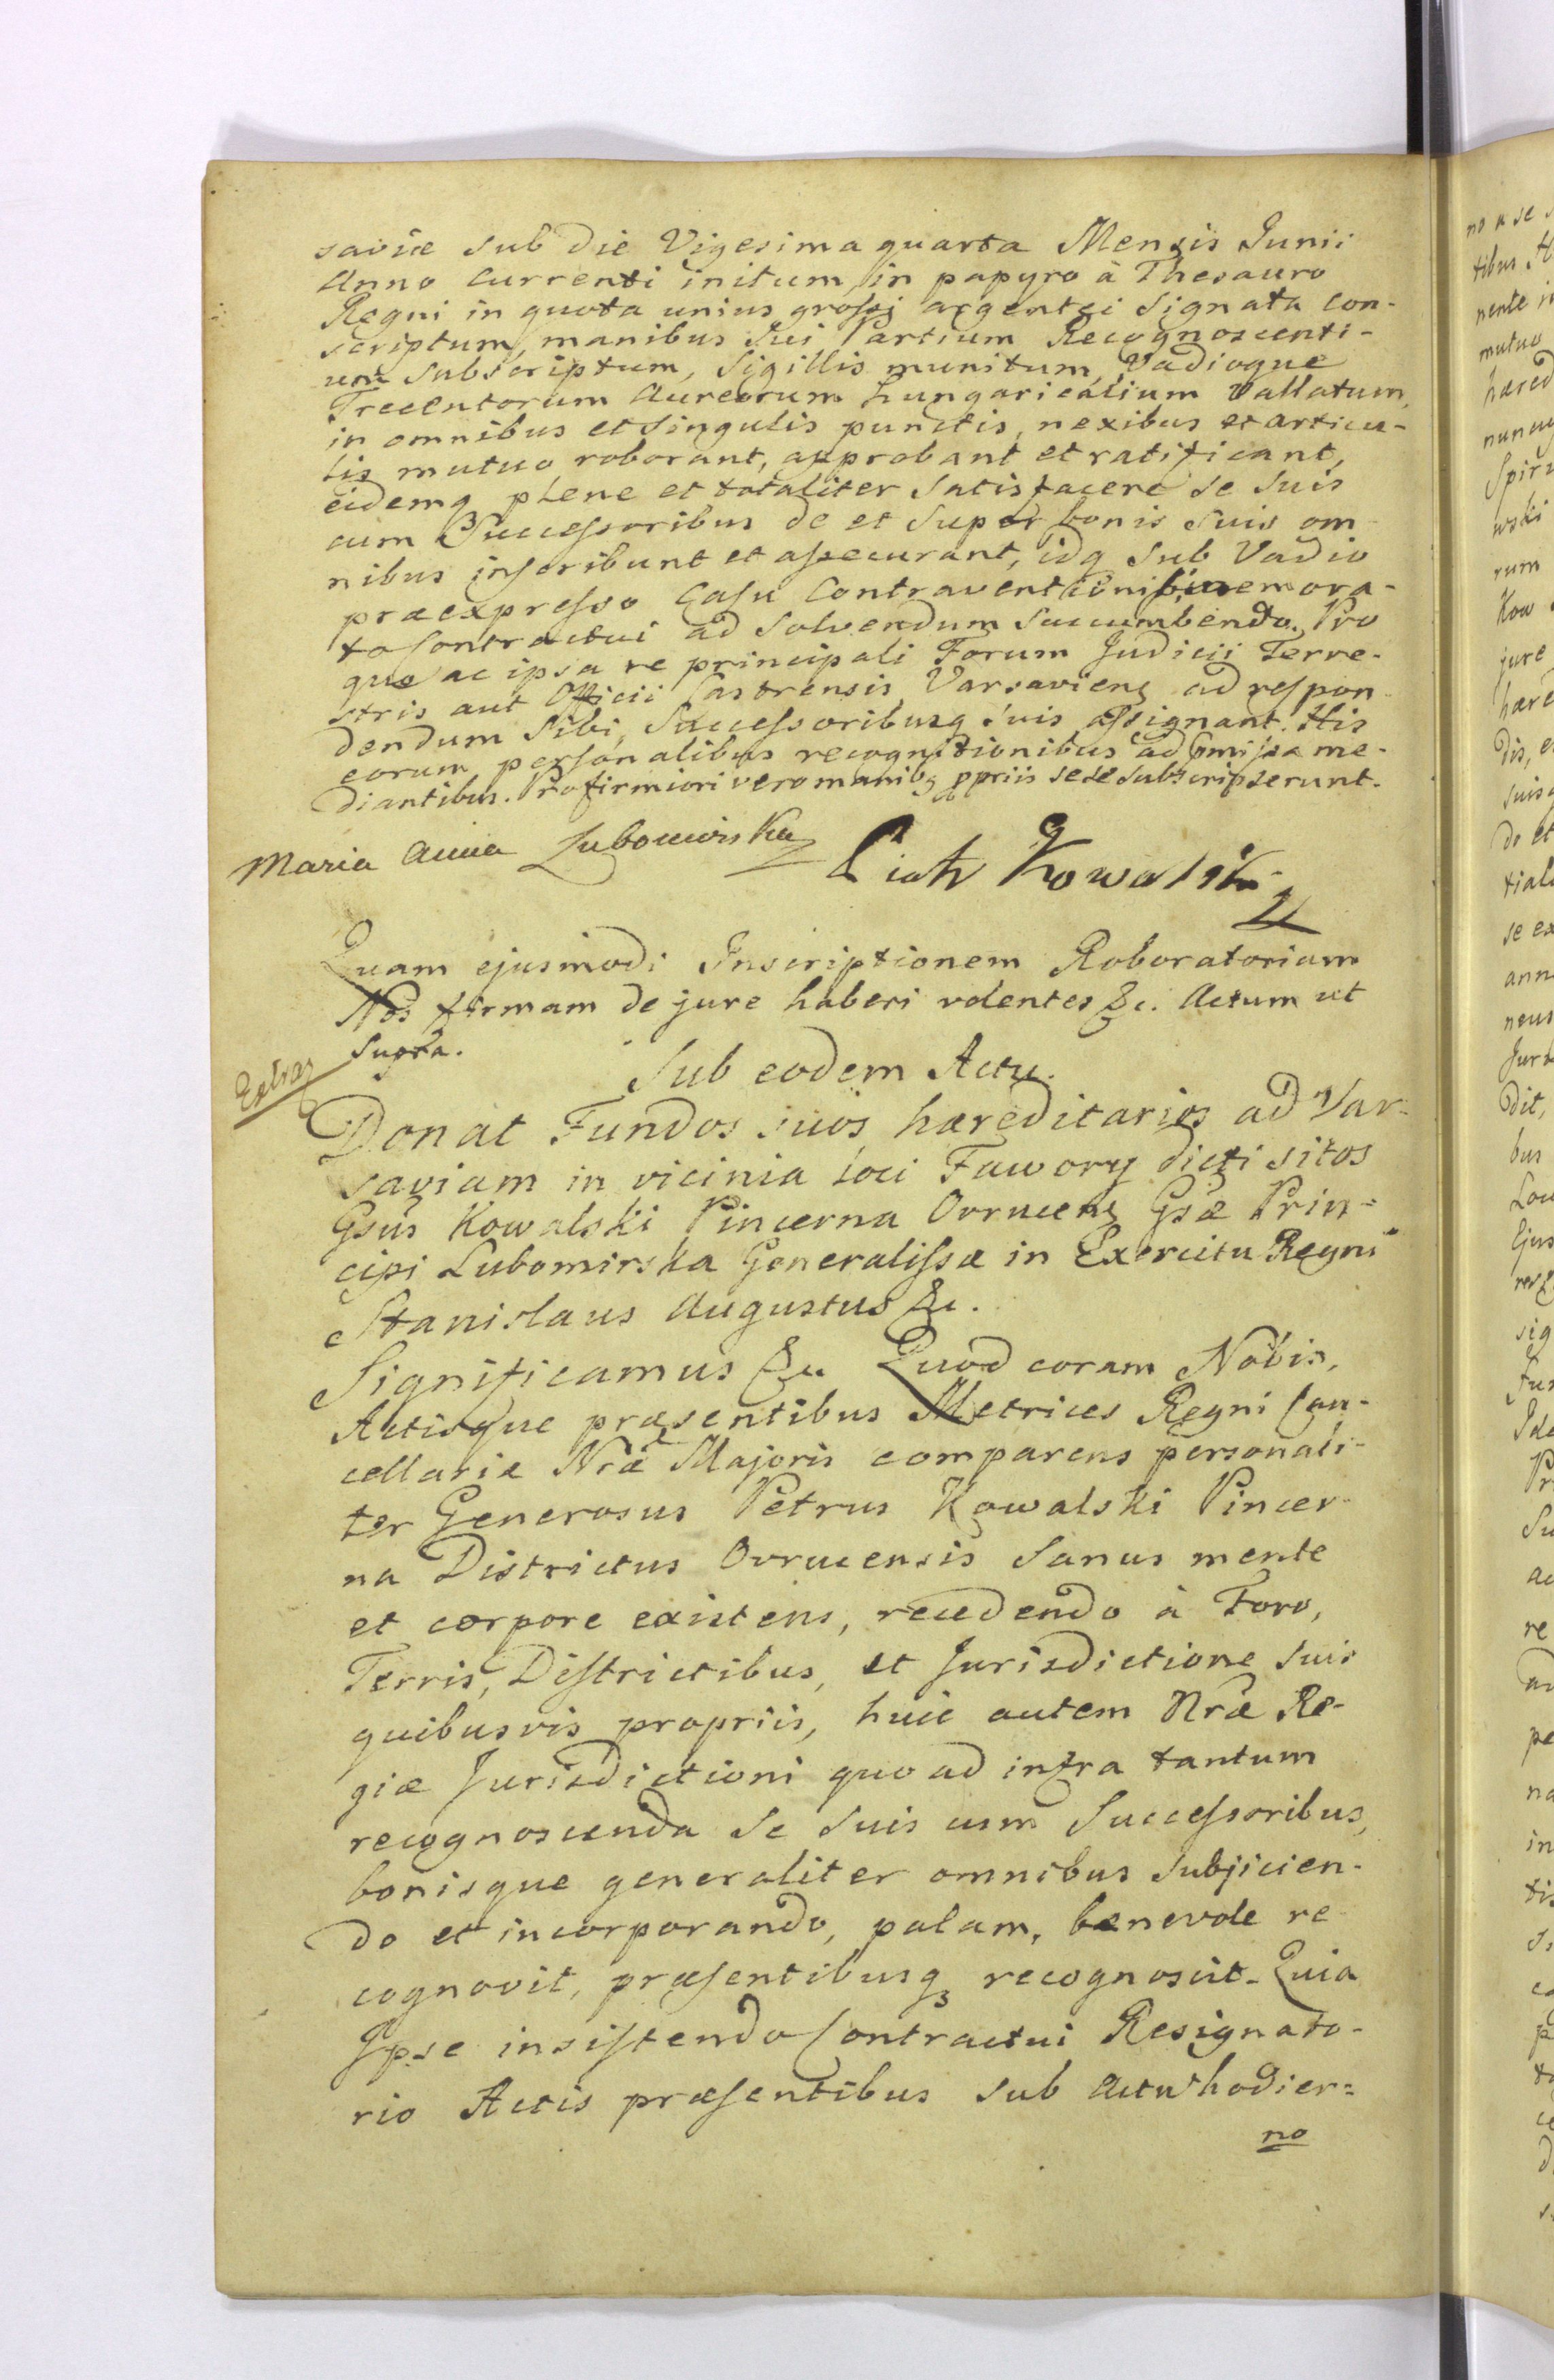 saviæ sub die Vigesima quarta Mensis Junii
Anno currenti initum, in papyro à Thesauro
Regni in quota unius grossi argentei signata con-
scriptum, manibus sui Partium Recognoscenti-
um subscriptum, Sigillis munitum, Vadioque
Trecentorum Aureorum hungaricalium Vallatum,
in omnibus et singulis punctis, nexibus et articu-
lis mutuo roborant, approbant et ratificant,
eidemq plene et totaliter satisfacere se suis
cum Successoribus de et super bonis suis om-
nibus inscribunt et assecurant, idq sub Vadio
præexpresso Casu Contraventionis
to Contractui ad solvendum succumbendo. Pro
quo ac ipsa re principali Forum Judicii Terre-
stris aut Officii Castrensis Varsaviens ad respon-
dendum sibi, Successoribusq suis assignant. His
eorum personalibus recognitionibus ad pmissa me-
diantibus. Pro firmiori vero manibq ppriis sese subscripserunt.
Maria Anna Lubomirska Piotr Kowalski
Quam ejusmodi Inscriptionem Roboratoriam
Nos firmam de jure haberi volentes &c. Actum ut
supra.
Extraz
Sub eodem Actu.
Donat Fundos suos hæreditarios ad Var-
saviam in vicinia loci Fawory dicti sitos
Gsus Kowalski Pincerna Ovrucens Gsæ Prin-
cipi Lubomirska Generalissæ in Exercitu Regni
Stanislaus Augustus &c.
Significamus &c Quod coram Nobis,
Actisque præsentibus Metrices Regni Can-
cellariæ Nræ Majoris comparens personali-
ter Generosus Petrus Kowalski Pincer-
na Districtus Ovrucensis sanus mente
et corpore existens, recedendo à Foro,
Terris, Districtibus, et Jurisdictione suis
quibusvis propriis, huic autem Nræ Re-
giæ Jurisdictioni quo ad infra tantum
recognoscenda se suis cum Successoribus,
bonisque generaliter omnibus subjicien-
do et incorporando, palam, benevole re-
cognovit, præsentibusq recognoscit. Quia
Ipse insistendo Contractui Resignato-
rio Actis præsentibus sub actu hodier-
no